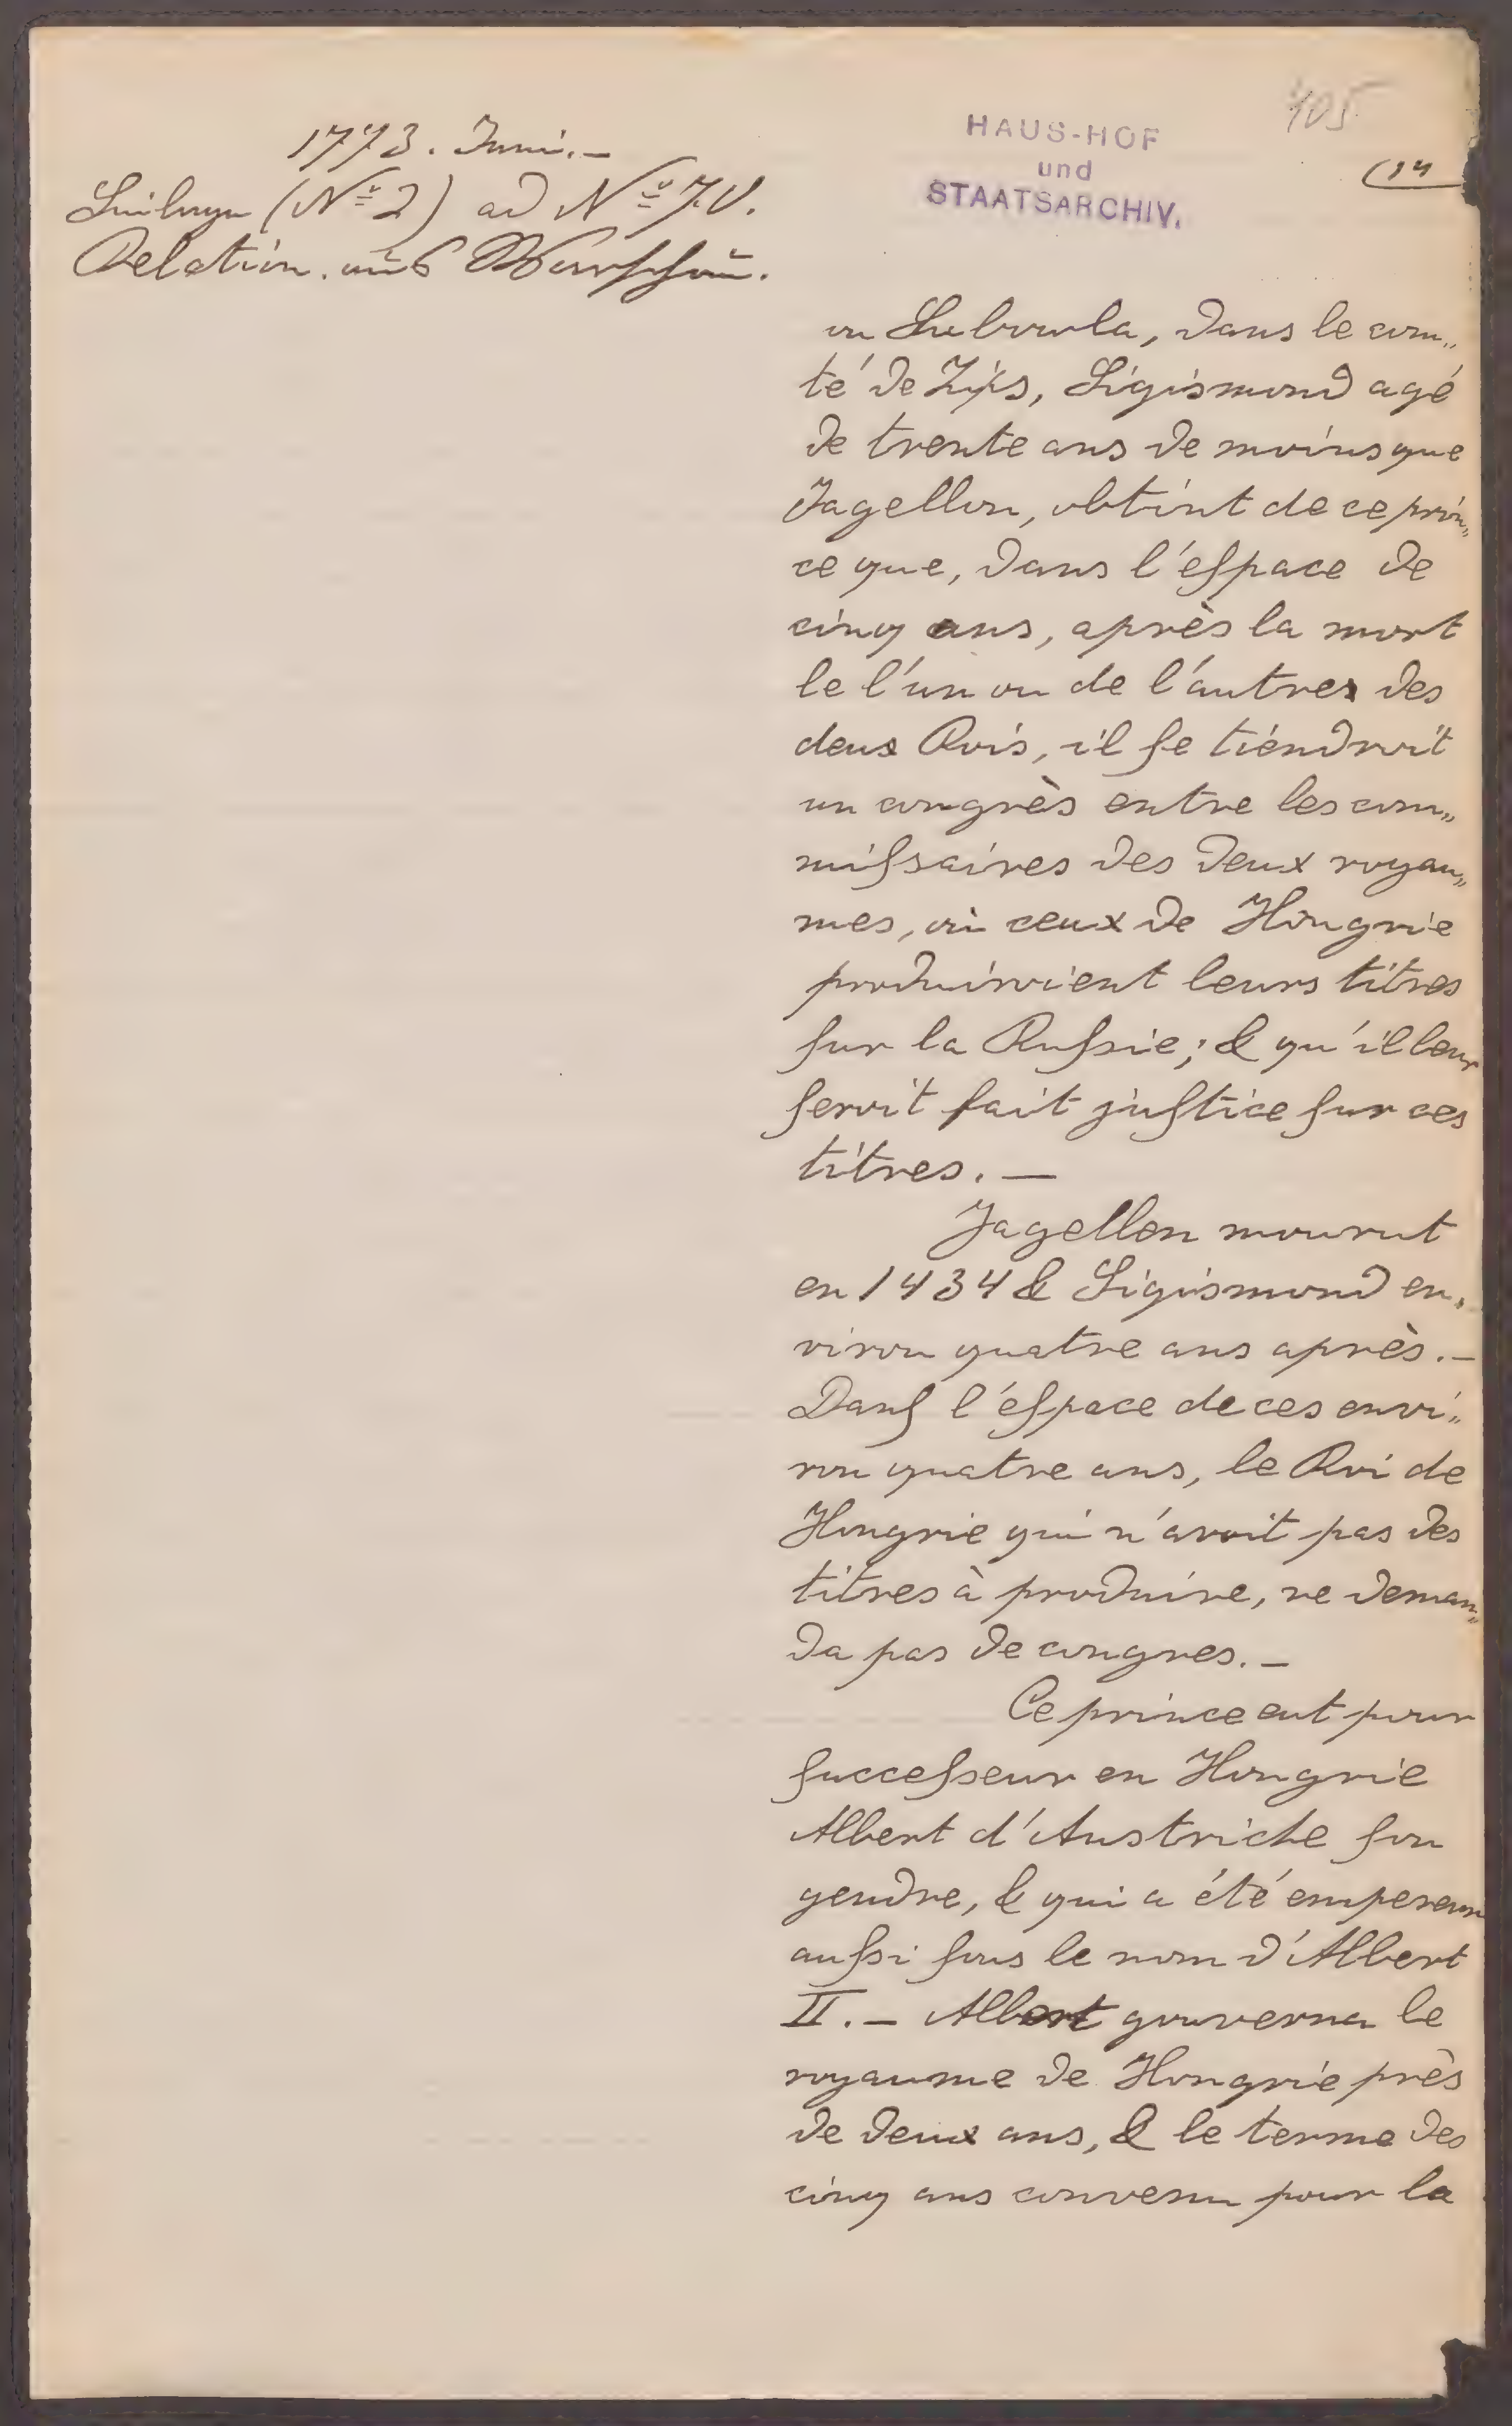 405
(14
HAUS-HOF
und
STAATSARCHIV.
1773. Juni. –
Beilage (Nº 2) ad Nº
Relation aus Warschau.
ou Lubowla, dans le com„
té de Zips, Sigismond agé
de trente ans de moins que
Jagellon, obtint de ce prin„
ce que, dans l'eſpace de
cinq ans, après la mort
le l'un ou de l'autres des
deux Rois, il ſe tiendroit
un congrès entre les com„
miſsaires des deux royau„
mes, où ceux de Hongrie
produiroient leurs titres
ſur la Ruſsie; & qu'il leur
ſeroit fait juſtice ſur ces
titres. —
Jagellon mourut
en 1434 & Sigismond en„
viron quatre ans après. –
Danſ l'éſpace de ces envi„
ron quatre ans, le Roi de
Hongrie qui n'avoit pas des
titres à produire, ne deman„
da pas de congres. –
Ce prince eut pour
ſucceſseur en Hongrie
Albert d'Austriche ſon
gendre, & qui a été empereur
auſsi ſous le nom d'Albert
II. – Albert gouverna le
royaume de Hongrie près
de deux ans, & le terme des
cinq ans convenu pour la